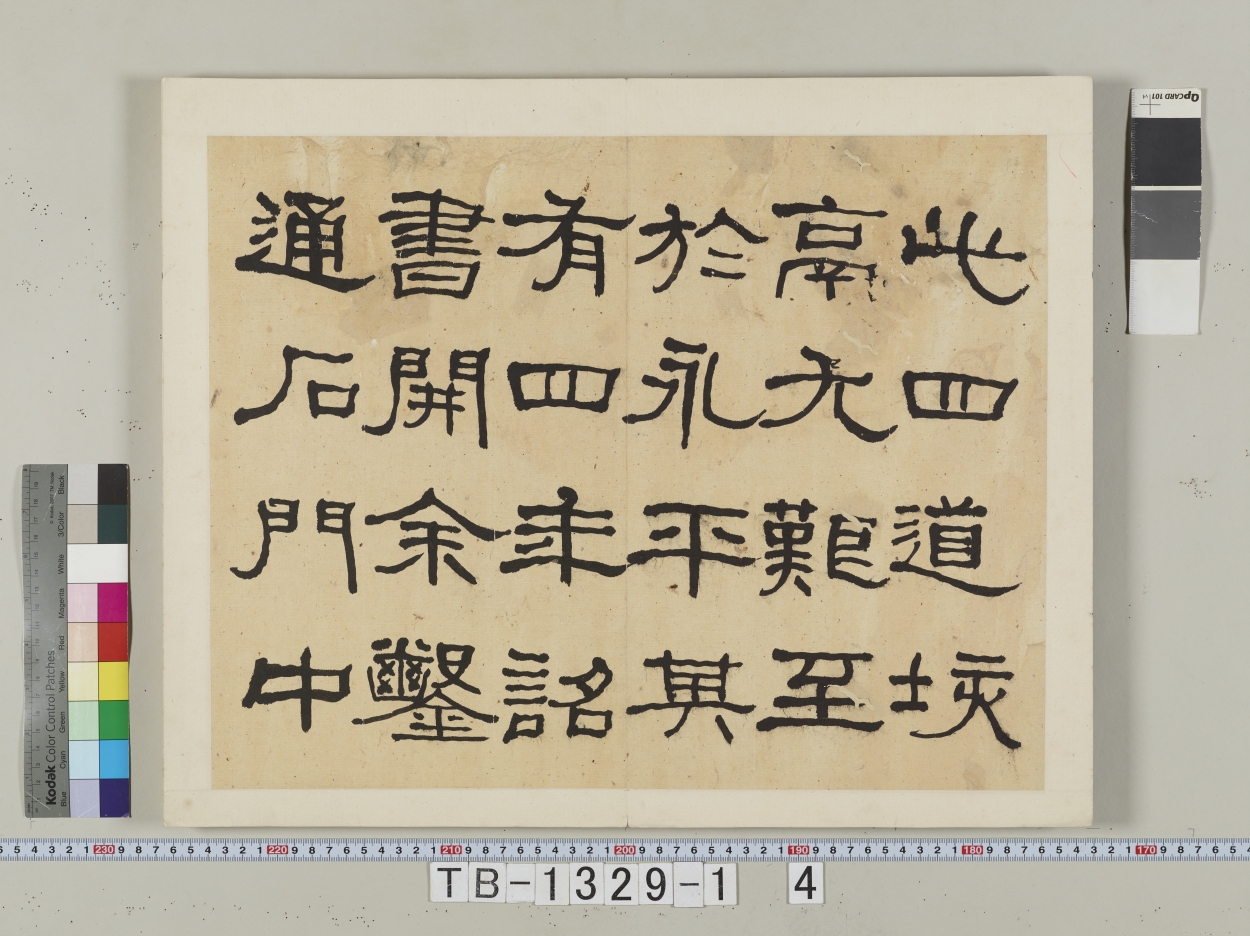 此四道垓
鬲尤艱至
於永平其
有四年詔
書開余鑿
通石門中
QPCARD 101
Kodak Color Control Patches
Blue Cyan Green Yellow Red Magenta White 3/Color Black
230 220 210 200 190 180 170
TB-1329-1 4